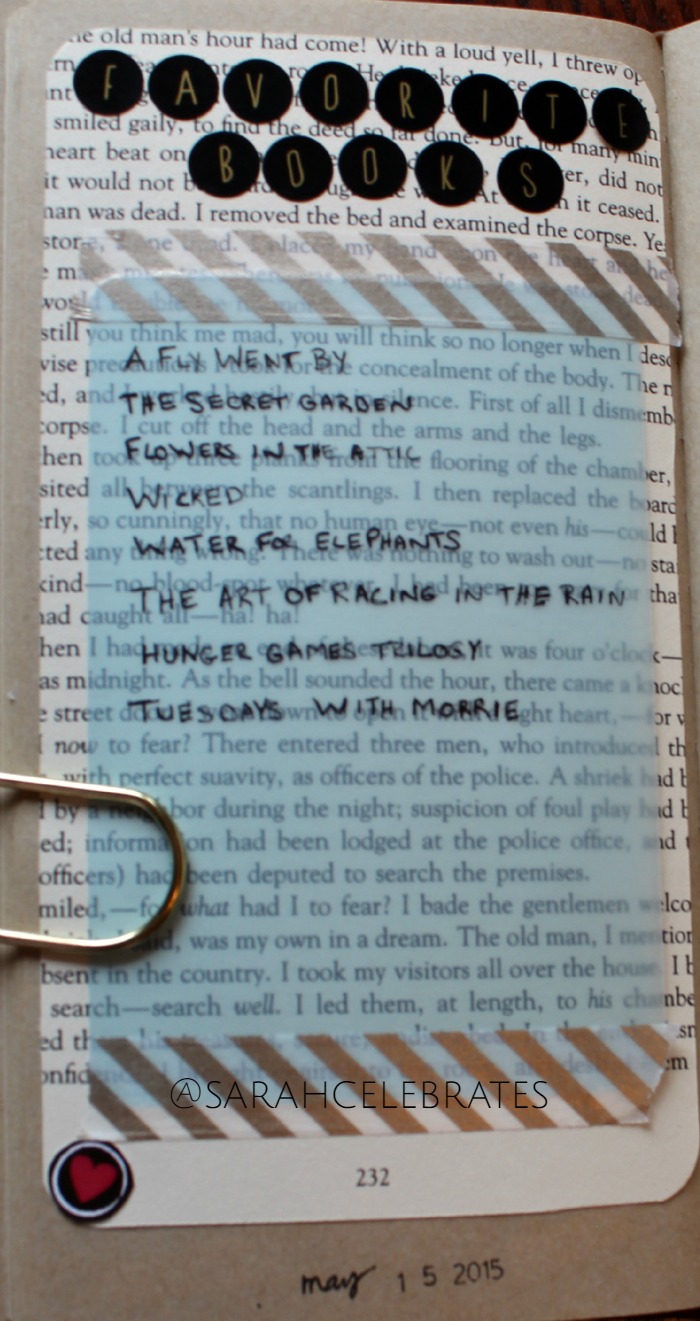 old man's hour had come! With a loud yell, I threw op
FAVORITE
smiled gaily, to find the deed so far done. But, for many min
heart beat on
BOOKS
er, did not
it would not b
At
it ceased.
nan was dead. I removed the bed and examined the corpse. Ye
still you think me mad, you will think so no longer when I desc
A FLY WENT BY
vise precautions I took for the concealment of the body. The n
THE SECRET GARDEN
ed, and
silence. First of all I dismemb
corpse. I cut off the head and the arms and the legs.
FLOWERS IN THE ATTIC
hen took up three planks from the flooring of the chamber,
WICKED
sited all between the scantlings. I then replaced the board
erly, so cunningly, that no human eye—not even his—could h
WATER FOR ELEPHANTS
cted any thing wrong. There was nothing to wash out—no sta
THE ART OF RACING IN THE RAIN
kind—no blood-spot whatever. I had been
for tha
had caught all—ha! ha!
HUNGER GAMES TRILOGY
hen I had
it was four o'clock—
as midnight. As the bell sounded the hour, there came a knoc
TUESDAYS WITH MORRIE
e street door. I went down to open it with a light heart,—for w
I now to fear? There entered three men, who introduced th
with perfect suavity, as officers of the police. A shriek had b
d by a neighbor during the night; suspicion of foul play had b
ed; information had been lodged at the police office, and t
officers) had been deputed to search the premises.
miled,—for what had I to fear? I bade the gentlemen welco
said, was my own in a dream. The old man, I mention
bsent in the country. I took my visitors all over the house. I b
search—search well. I led them, at length, to his chambe
@SARAHCELEBRATES
232
may 15 2015